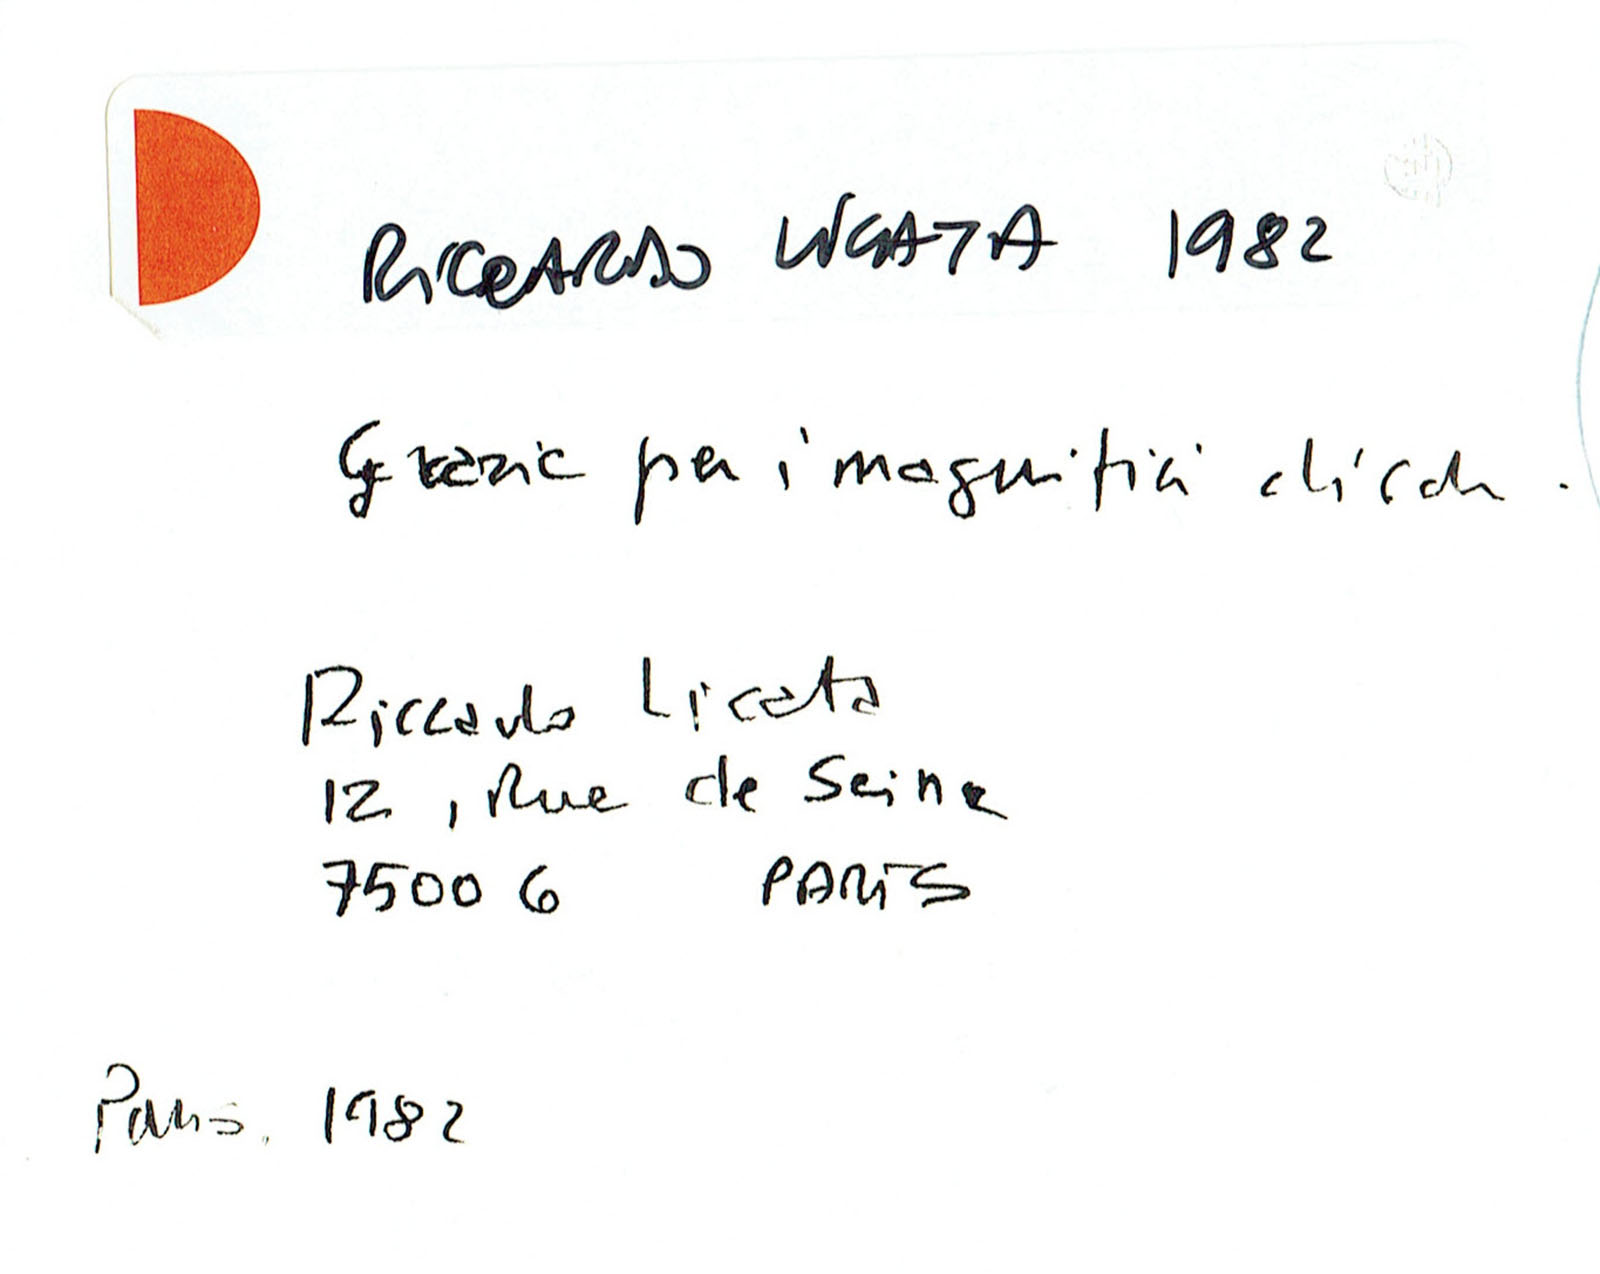 RICCARDO LICATA 1982
Grazie per i magnifici dischi.
Riccardo Licata
12, Rue de Seine
75006 PARIS
Paris. 1982